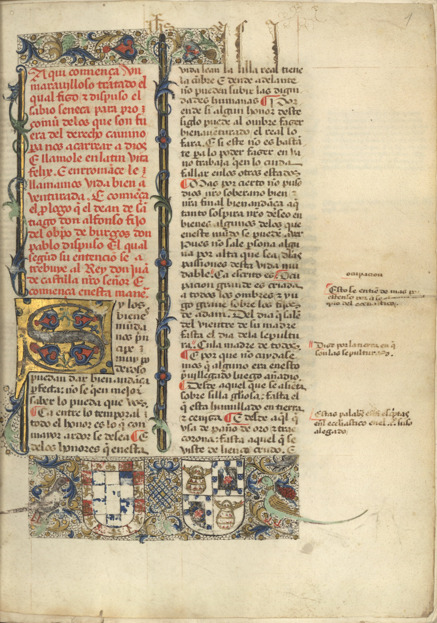 Aqui comença un
marauilloso tractado el
qual fizo τ dispuso el
sabio seneca para pro
comũ delos que son fu
era del derecho camino
pa nos acarrear a dios
E llamole en latin vita
felix. E en romãce le
llamamos vida bien a
venturada. E comiença
el plogo q̃ el dean de sã
tiago don alfonso fijo
del obpo de burgos don
pablo dispuso El qual
segũd su entençio se a
tribuye al Rey don juã
de castilla nrõ señor E
comiença en esta manera
los
biene
mũda
nos
muy
poderoso
puedan dar bien andãça
pfecta: no se q̃en mejor
saber lo pueda que vos.
Ca entre lo temporal
todo el honor es lo q̃ con
mayor ardor se desea E
delos honores q̃ en esta
vida sean la silla real tiene
la cũbre E dende adelante
no pueden subir las digni
dades humanas Por
ende si algun honor deste
siglo puede al ombre fazer
bienauenturado el real lo
fara. E si este no es basta
te pa lo poder fazer en va
no trabaja q̃en lo cuida
fallar en los otros estados.
Mas por çierto no puso
dios nrõ soberano bien
nrã final bienandãça aq̃
tanto sospira nrõ deseo en
bienes algunos delos que
en este mũdo se puede auer
pones no sale psona algu
na por alta que sea. delas
passiones desta vida mu
dable. Ca escrito es
paçion grande es criada
a todos los ombres τ yu
go graue sobre los fijos
de adam. Del dia q̃ sale
del vientre de su madre
fasta el dia dela sepultu
ra. En la madre de todos.
E por que no cuydase
mos q̃ alguno era en esto
puillegiado luego añadio.
Desde aquel que se asienta
sobre silla gliosa. fasta el
q̃ esta humillado en tierra
τ çeniza. E desde aq̃l q̃
usa de paño de oro τ trae
corona: fasta aquel q̃ se
viste de lienço crudo. E
ocupaçion
Esto se entiẽde mas
Dize por la tierra en q̃
son las sepulturas.
Estas palabras escriptas
en el eclesiastico en el
alegado.